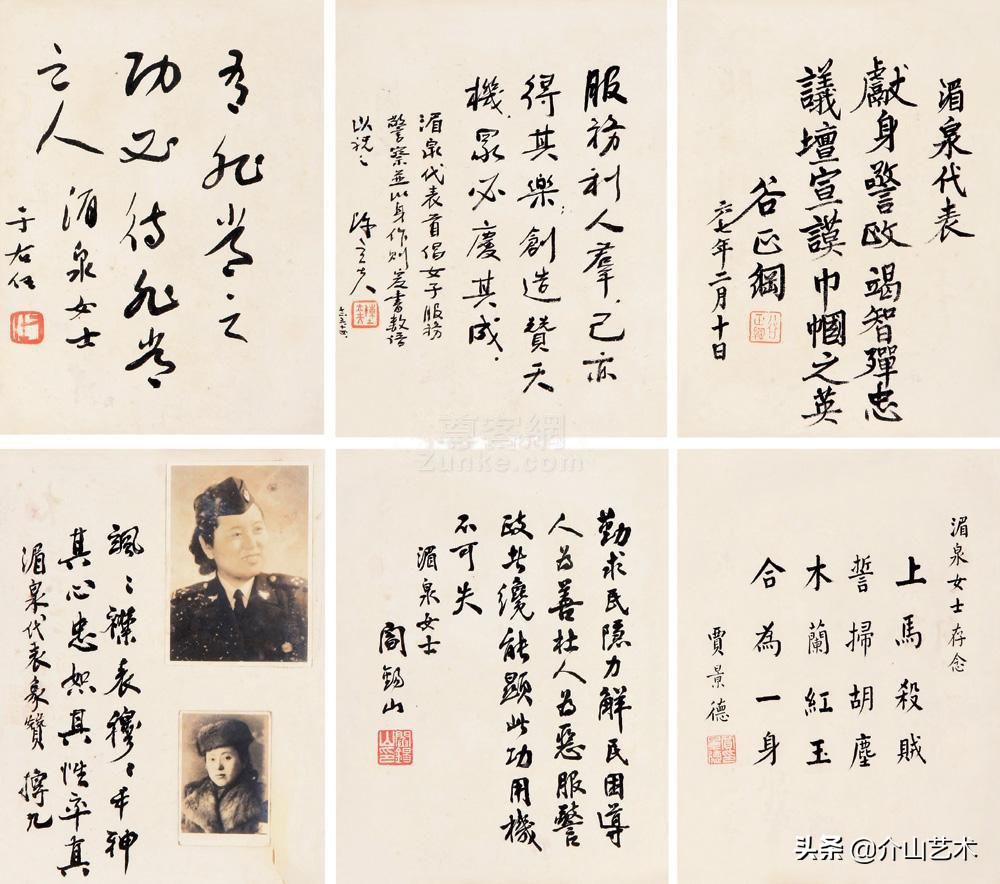 湄泉代表
獻身警政竭智殫忠
議壇宣謨巾幗之英
谷正綱
六七年二月十日
服務利人羣,己亦
得其樂;創造贊天
機,眾必慶其成.
湄泉代表首倡女子服務
警察並以身作則爰書数語
以祝之 陳立夫
有非常之
功必待非常
之人
湄泉女士
于右任
湄泉女士存念
上馬殺賊
誓掃胡塵
木蘭紅玉
合為一身
賈景德
勤求民隱力解民困導
人為善杜人為惡服警
政者纔能顯此功用機
不可失
湄泉女士
閻錫山
襟表穆〻丰神
其心忠恕其性率真
湄泉代表象贊
尊客網
Zunke.com
头条 @介山艺术